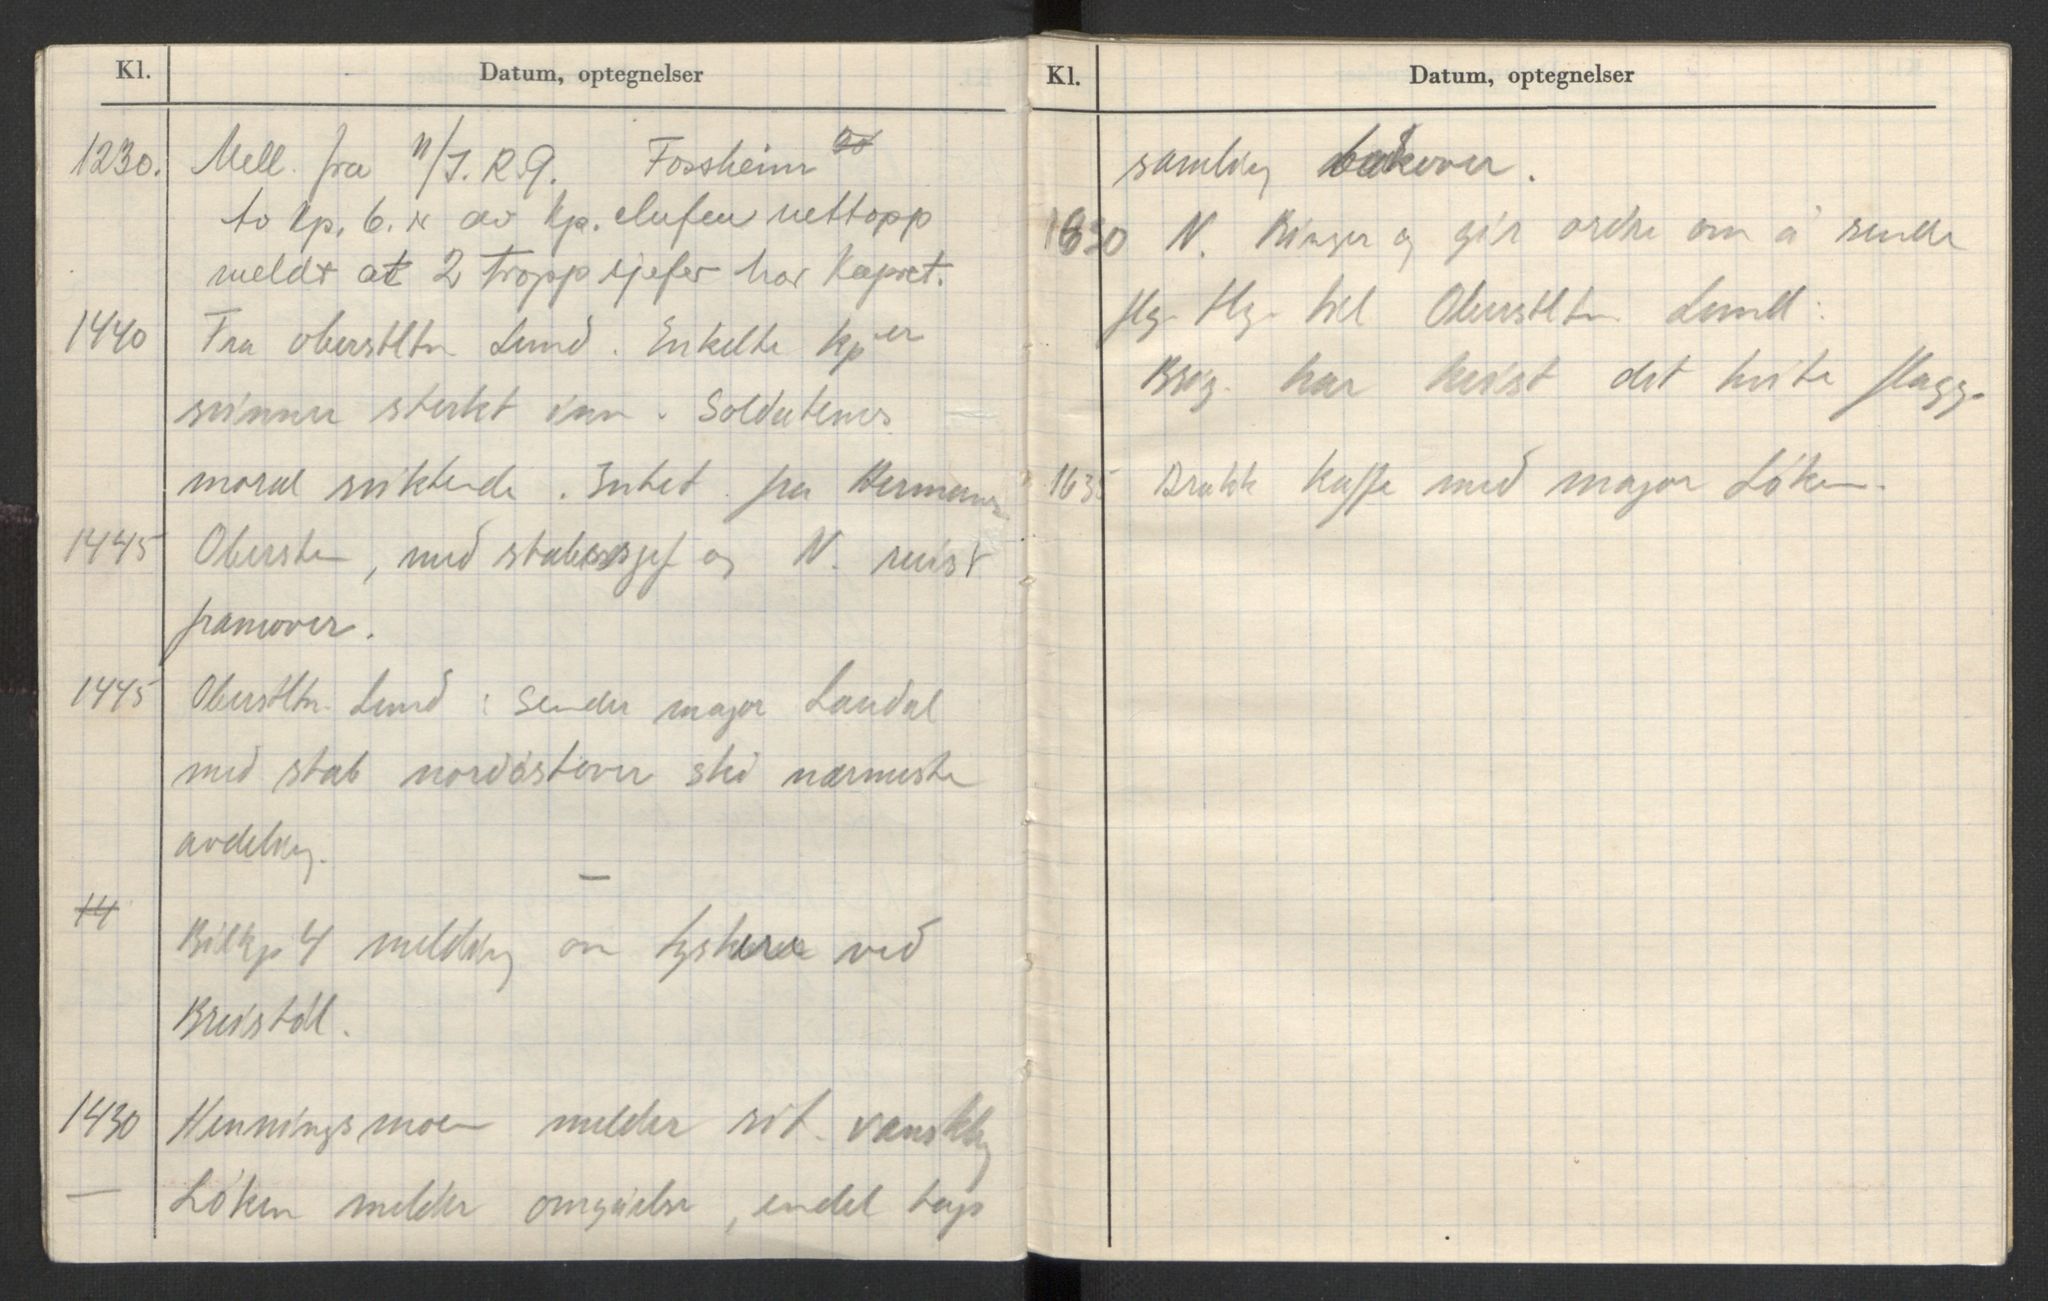 Kl. Datum, optegnelser
1230. Mell. fra II/I.R 9. Fossheim
to kp. 6. av kp. nettopp
meldt at 2 troppsjefer har kapret.
1440 Fra oberstltn Lund. Enkelte kp er
svinner sterkt inn. Soldatenes
moral sviktende. Intet fra Hermans
1445 Obersten, med stabssjef og N. reist
framover.
1445 Oberstltn. Lund: Sender major Landal
med stab nordöstover ski nærmeste
avdeling.
—
14
Bilkp 4 melding om tyskere ved
Breistöl.
1430 Henningsmoen melder sit. vanskelig
— Löken melder omgåelse, endel tap
Kl. Datum, optegnelser
samling bakover.
1630 N. Ringer og gir ordre om å sende
flg. til Oberstltn Lund:
Brig. har heist det hvite flagg.
1635 Drakk kaffe med major Löken.